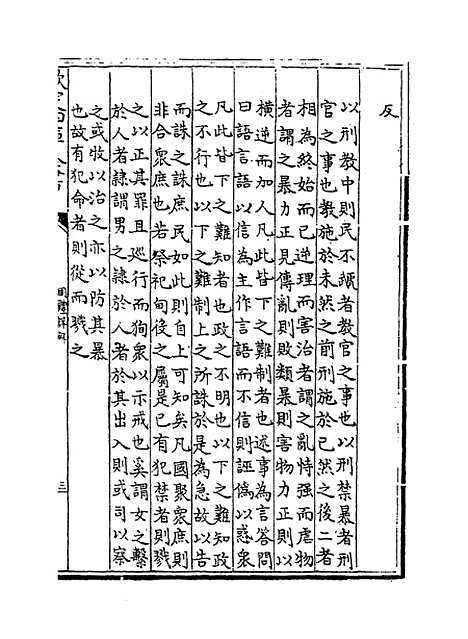 反
以刑教中則民不虣者教官之事也以刑禁暴者刑
官之事也教施於未然之前刑施於已然之後二者
相為終始而已逆理而害治者謂之亂恃强而虐物
者謂之暴力正見傳亂則敗類暴則害物力正則以
横逆而加人凡此皆下之難制者也述事為言答問
曰語言語以信為主作言語而不信則誣偽以惑衆
凡此皆下之難知者也政之不明也以下之難知政
之不行也以下之難制上之所誅於是為急故以告
而誅之誅庶民如此則自上可知矣凡國聚衆庶則
非合衆庶也若祭祀甸役之屬是已有犯禁者則戮
之以正其罪且廵行而狥衆以示戒也奚謂女之繫
於人者隷謂男之隷於人者於其出入則或司以察
之或牧以治之亦以防其暴
也故有犯命者則從而戮之
周禮詳解
三